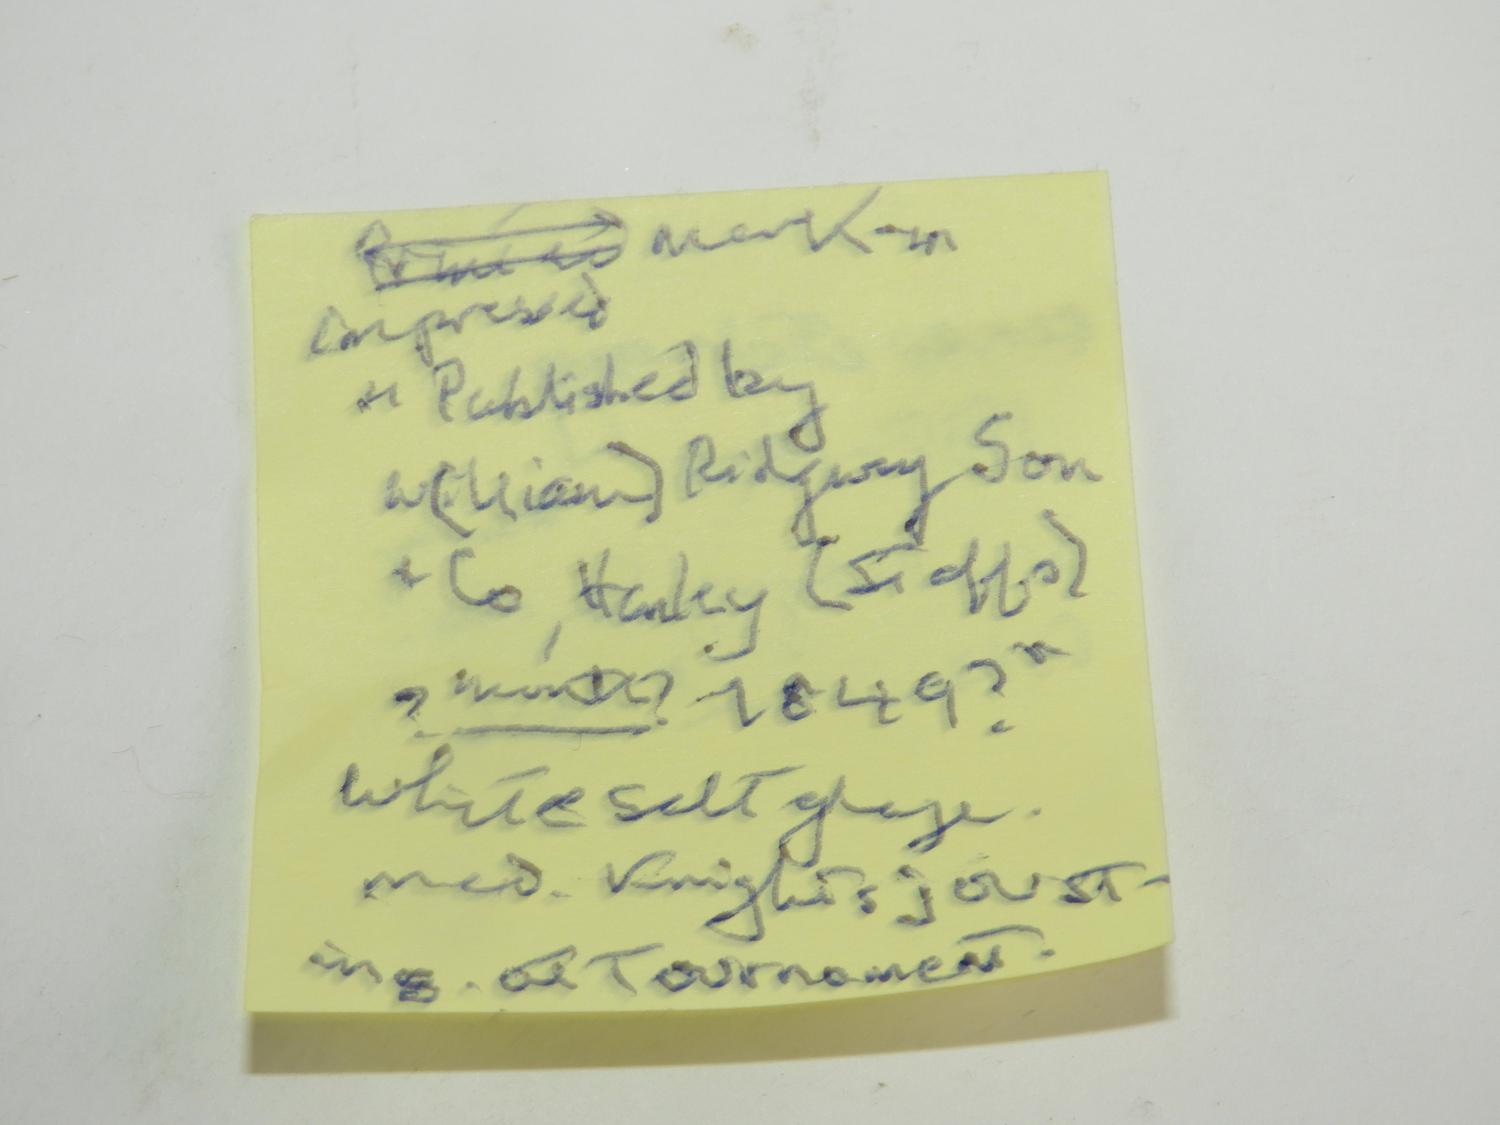 mark in
impressed
" Published by
W(illiam) Ridgway Son
+ Co, Hanley (Staffs)
? month? 1849?"
White salt glaze.
med. Knights joust-
ing. at Tournament.